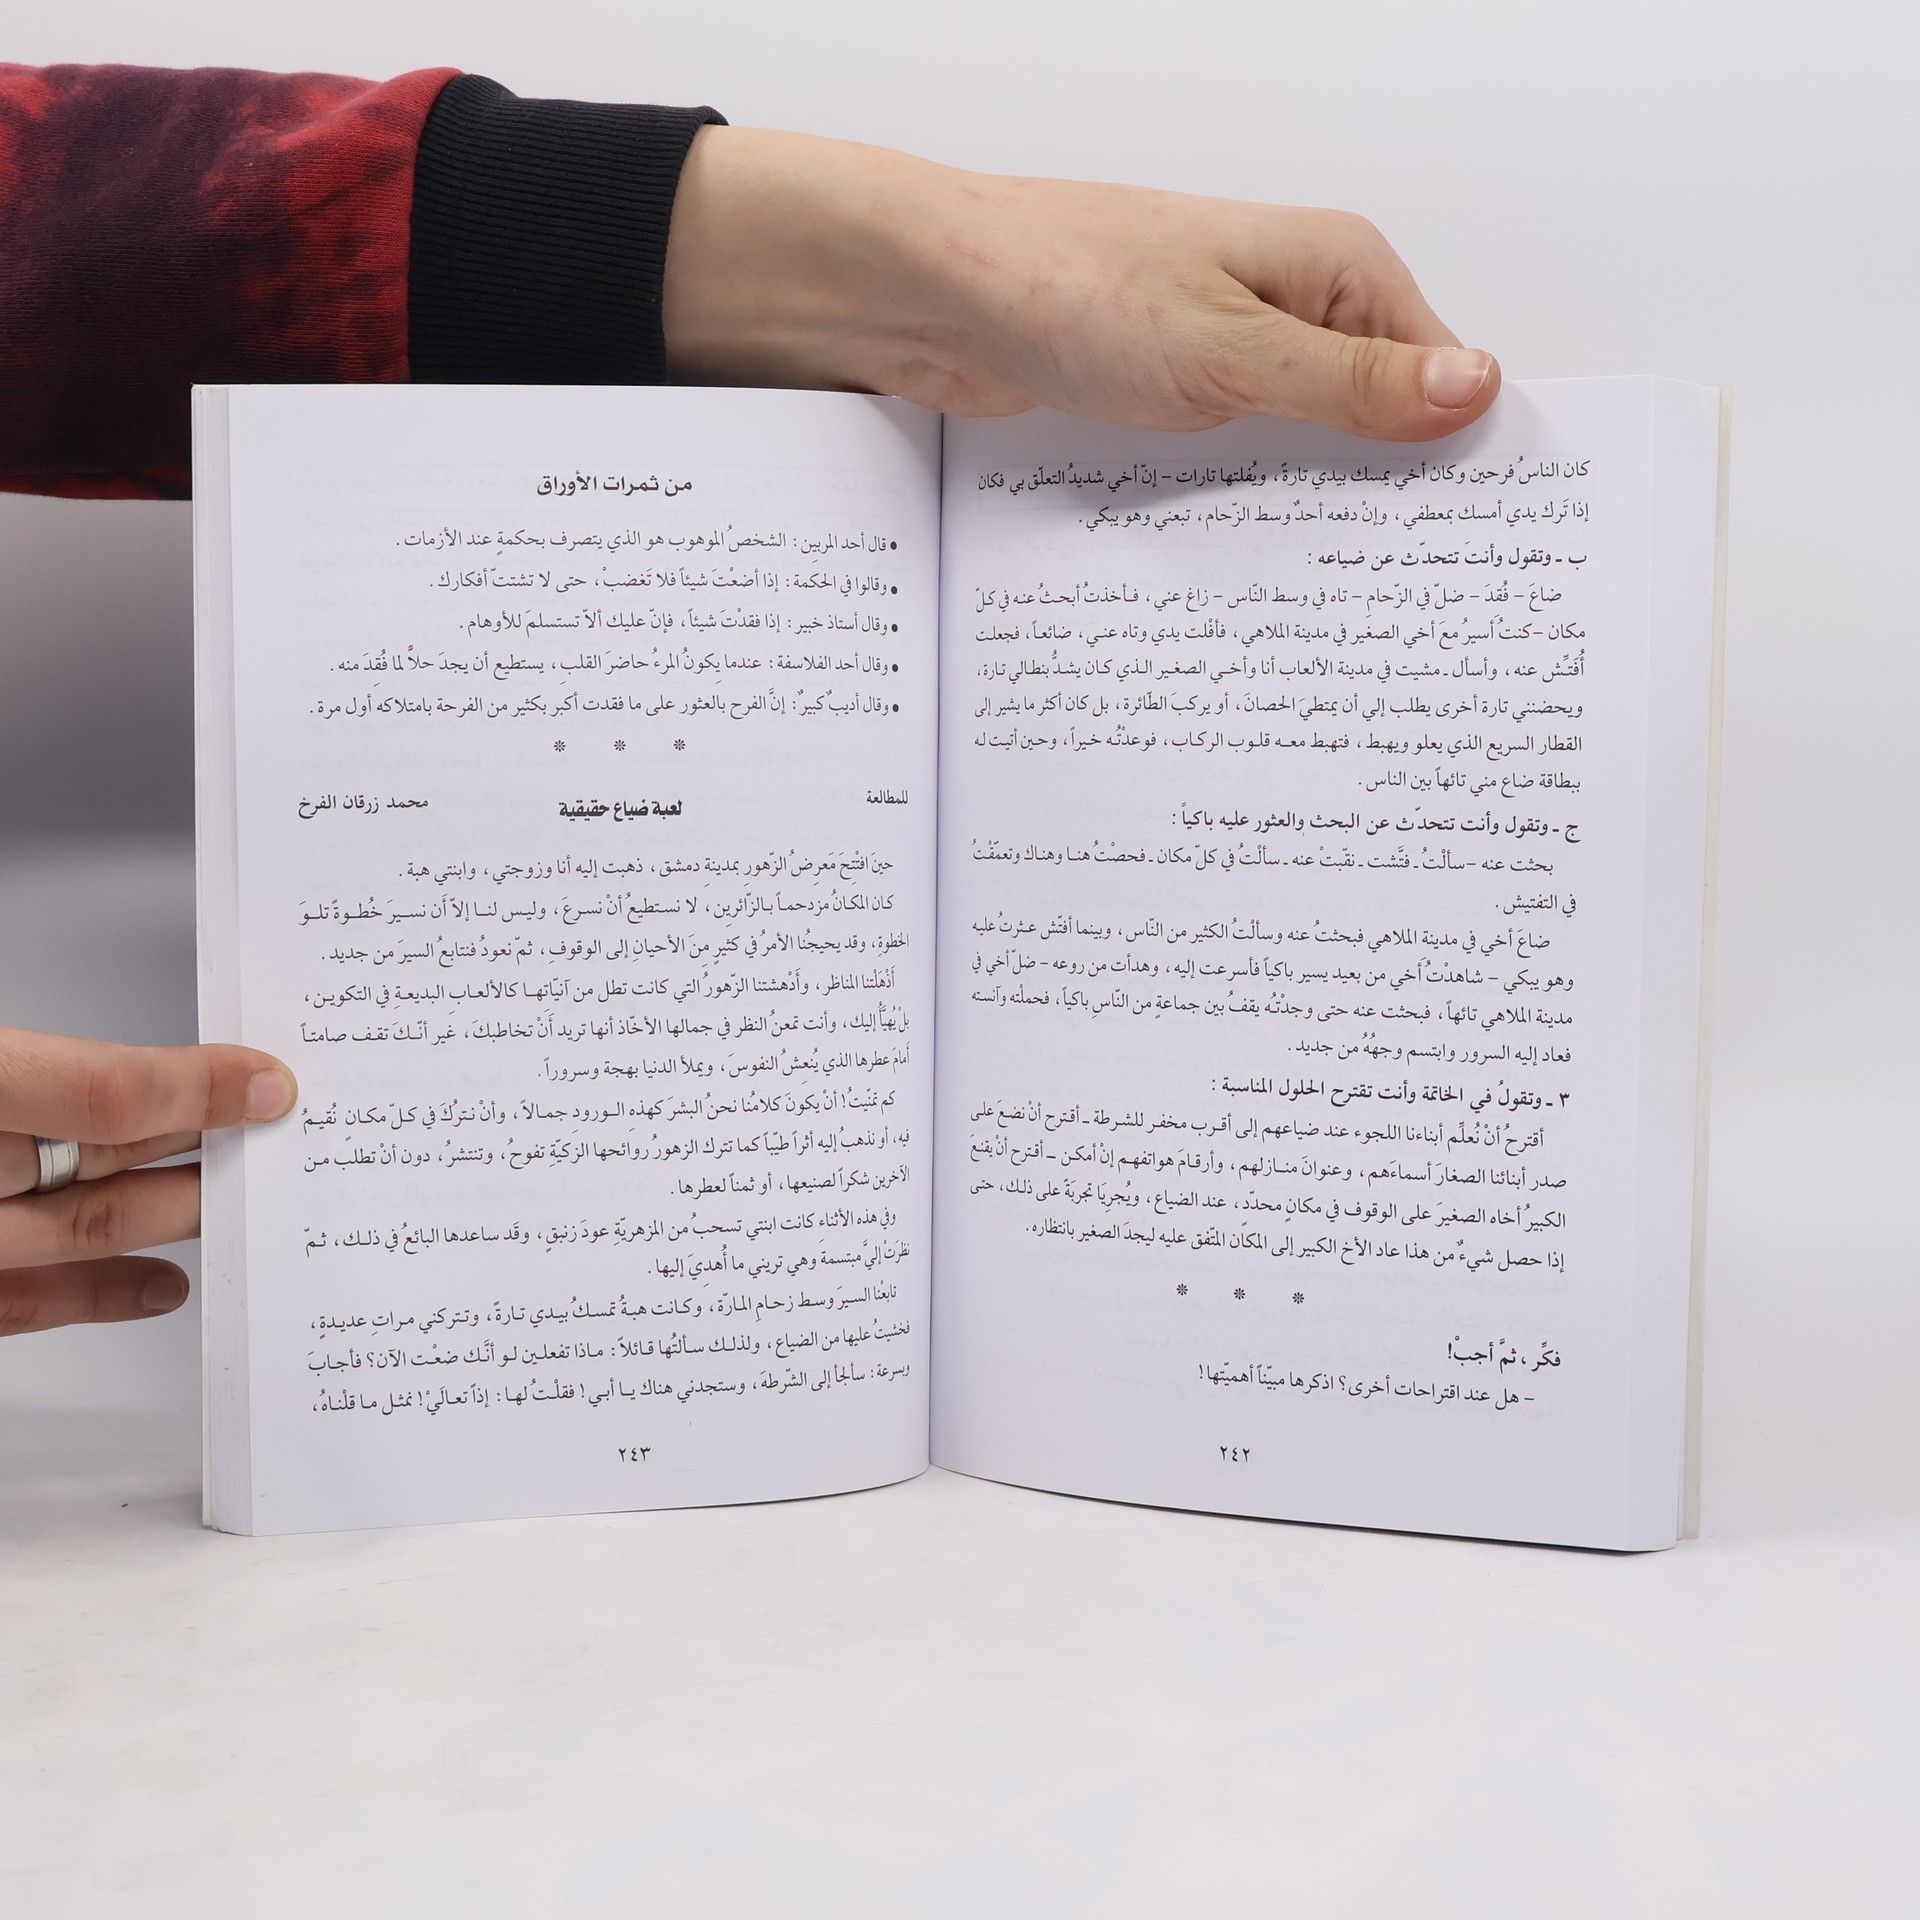 كان الناسُ فرحين وكان أخي يمسك بيدي تارةً، ويُفلتها تارات – إنّ أخي شديدُ التعلّق بي فكان
إذا تَرك يدي أمسك بمعطفي، وإنْ دفعه أحدٌ وسط الزّحام، تبعني وهو يبكي.
ب ـ وتقول وأنتَ تتحدّث عن ضياعه:
ضاعَ – فُقدَ – ضلّ في الزّحامِ – تاه في وسط النّاس – زاغ عني، فأخذتُ أبحثُ عنه في كلّ
مكان – كنتُ أسيرُ معَ أخي الصغير في مدينة الملاهي، فأفْلت يدي وتاه عني، ضائعاً، فجعلت
أُفَتِّش عنه، وأسأل ـ مشيت في مدينة الألعاب أنا وأخي الصغير الذي كان يشدُّ بنطالي تارة،
ويحضنني تارة أخرى يطلب إلي أن يمتطيَ الحصانَ، أو يركبَ الطّائرة، بل كان أكثر ما يشير إلى
القطار السريع الذي يعلو ويهبط، فتهبط معه قلوب الركاب، فوعدْتُه خيراً، وحين أتيت له
ببطاقة ضاع مني تائهاً بين الناس.
ج ـ وتقول وأنت تتحدّث عن البحث والعثور عليه باكياً:
بحثت عنه – سألْتُ ـ فتَّشت ـ نقّبتْ عنه ـ سألْتُ في كلّ مكان ـ فحصْتُ هنا وهناك وتعمّقْتُ
في التفتيش.
ضاعَ أخي في مدينة الملاهي فبحثتُ عنه وسألْتُ الكثير من النّاس، وبينما أفتّش عثرتُ عليه
وهو يبكي – شاهدْتُ أخي من بعيد يسير باكياً فأسرعت إليه، وهدأت من روعه – ضلّ أخي في
مدينة الملاهي تائهاً، فبحثت عنه حتى وجدْتُه يقفُ بين جماعةٍ من النّاسِ باكياً، فحملْته وآنسته
فعاد إليه السرور وابتسم وجههُ من جديد.
٣ ـ وتقولُ في الخاتمة وأنت تقترح الحلول المناسبة:
أقترحُ أنْ نُعلِّم أبناءنا اللجوء عند ضياعهم إلى أقرب مخفر للشرطة ـ أقترح أنْ نضعَ على
صدر أبنائنا الصغارَ أسماءَهم، وعنوانَ منازلهم، وأرقامَ هواتفهم إنْ أمكن ـ أقترح أنْ يقنعَ
الكبيرُ أخاه الصغيرَ على الوقوف في مكانٍ محدّد، عند الضياع، ويُجريَا تجربَةً على ذلك، حتى
إذا حصل شيءٌ من هذا عاد الأخ الكبير إلى المكان المتّفق عليه ليجدَ الصغير بانتظاره.
* * *
فكِّر، ثمَّ أجبْ!
– هل عند اقتراحات أخرى؟ اذكرها مبيّناً أهميّتها!
٢٤٢
من ثمرات الأوراق
• قال أحد المربين: الشخصُ الموهوب هو الذي يتصرف بحكمةٍ عند الأزمات.
• وقالوا في الحكمة: إذا أضعْتَ شيئاً فلا تَغضبْ، حتى لا تشتتّ أفكارك.
• وقال أستاذ خبير: إذا فقدْتَ شيئاً، فإنّ عليك ألاّ تستسلمَ للأوهام.
• وقال أحد الفلاسفة: عندما يكونُ المرءُ حاضرَ القلبِ، يستطيع أن يجدَ حلاًّ لما فُقِدَ منه.
• وقال أديبٌ كبيرٌ: إنَّ الفرح بالعثور على ما فقدت أكبر بكثير من الفرحة بامتلاكه أول مرة.
* * *
للمطالعة لعبة ضياع حقيقية محمد زرقان الفرخ
حينَ افتُتِحَ مَعرِضُ الزّهورِ بمدينةِ دمشق، ذهبت إليه أنا وزوجتي، وابنتي هبة.
كان المكانُ مزدحماً بالزّائرين، لا نستطيعُ أنْ نسرعَ، وليس لنا إلاّ أن نسيرَ خُطوةً تلوَ
الخطوةِ، وقد يحيجُنا الأمرُ في كثيرٍ مِنَ الأحيانِ إلى الوقوف، ثمّ نعودُ فنتابعُ السيرَ من جديد.
أَذْهَلَتْنا المناظر، وأَدْهشتنا الزّهورُ التي كانت تطل من آنيّاتِها كالألعابِ البديعةِ في التكوين،
بلْ يُهيَّأُ إليك، وأنت تمعنُ النظر في جمالها الأخّاذ أنها تريد أنْ تخاطبكَ، غير أنّكَ تقف صامتاً
أمامَ عطرِها الذي يُنعِشُ النفوسَ، ويملأ الدنيا بهجة وسروراً.
كم تمنّيتُ! أنْ يكونَ كلامُنا نحنُ البشرَ كهذه الورود جمالاً، وأنْ نتركَ في كلّ مكانٍ نُقيمُ
فيه، أو نذهبُ إليه أثراً طيّباً كما تترك الزهورُ روائحها الزكيّةِ تفوحُ، وتنتشرُ، دون أنْ تطلبَ من
الآخرين شكراً لصنيعها، أو ثمناً لعطرها.
وفي هذه الأثناءِ كانت ابنتي تسحبُ من المزهريّةِ عودَ زنبقٍ، وقد ساعدها البائعُ في ذلك، ثمّ
نظرَتْ إليَّ مبتسمةً وهي تريني ما أُهدِيَ إليها.
تابعْنا السيرَ وسط زحامِ المارّة، وكانت هبةُ تمسكُ بيدي تارةً، وتتركني مراتٍ عديدةٍ،
فخشيتُ عليها من الضياع، ولذلك سألتُها قائلاً: ماذا تفعلين لو أنَّك ضعْت الآن؟ فأجابَ
وبسرعة: سألجأ إلى الشّرطة، وستجدني هناك يا أبي! فقلْتُ لها: إذاً تعالَيْ! نمثل ما قلْناهُ،
٢٤٣